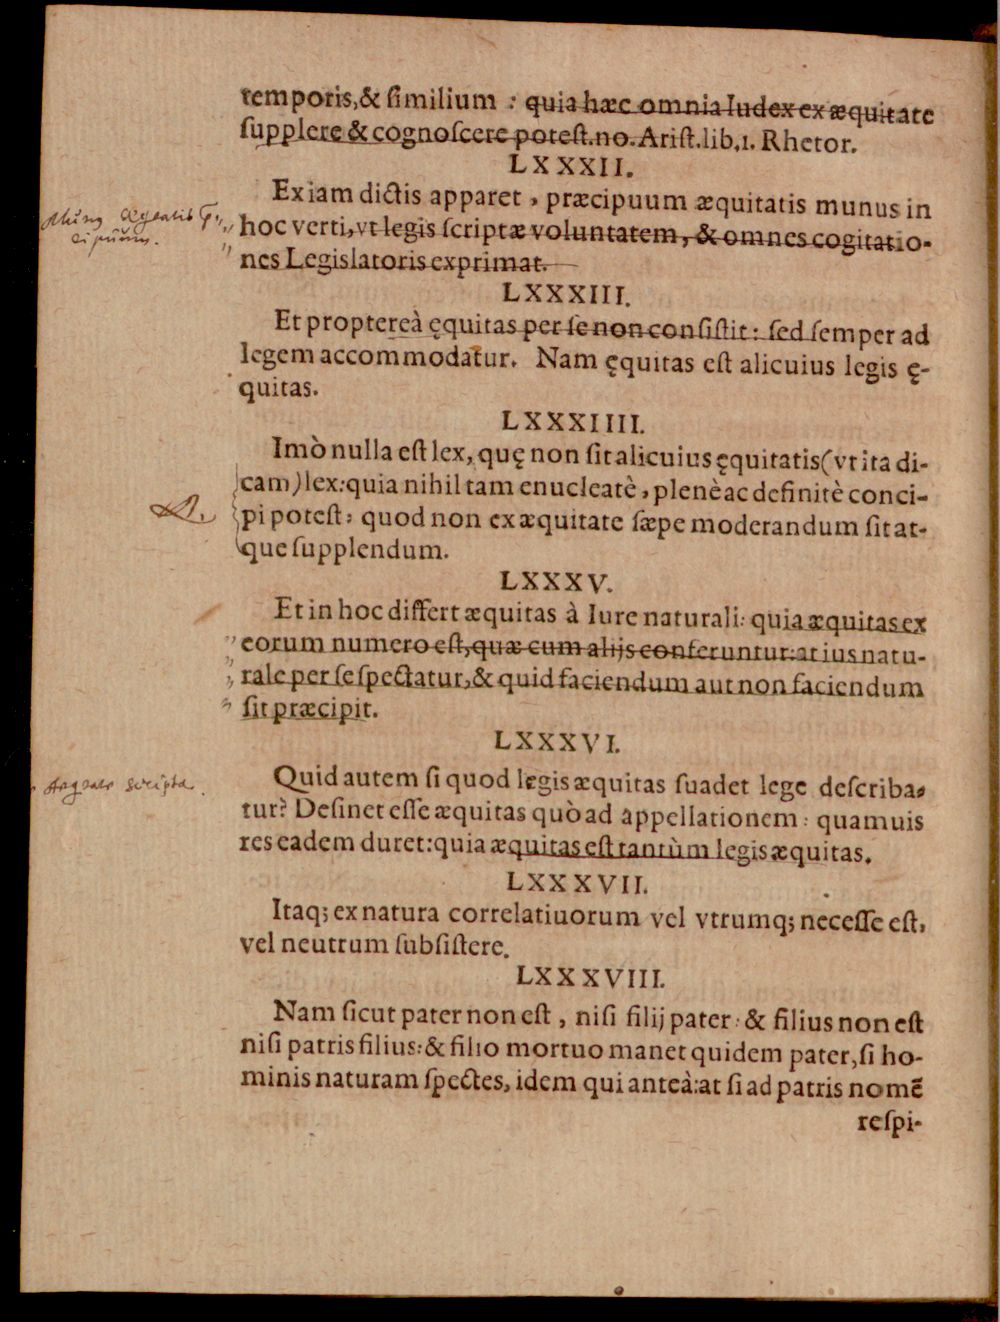 temporis,& ſimilium : quia hæc omnia Iudex ex æquitate
ſupplere & cognoſcere poteſt. no. Ariſt. lib,1. Rhetor.
LXXXII.
Ex iam dictis apparet , præcipuum æquitatis munus in
hoc verti, vt legis ſcriptæ voluntatem, & omnes cogitatio-
nes Legislatoris exprimat.
LXXXIII.
Et proptereà ęquitas per ſe non conſiſtit: ſed ſemper ad
legem accommodatur. Nam ęquitas eſt alicuius legis ę-
quitas.
LXXXIIII.
Imò nulla eſt lex, quę non ſit alicuius ęquitatis (vt ita di-
cam) lex: quia nihil tam enucleatè , plenè ac definitè conci-
pi poteſt: quod non ex æquitate ſæpe moderandum ſit at-
que ſupplendum.
LXXXV.
Et in hoc differt æquitas à Iure naturali: quia æquitas ex
eorum numero eſt, quæ cum alijs conferuntur: at ius natu-
rale per ſe ſpectatur,& quid faciendum aut non faciendum
ſit præcipit.
LXXXVI.
scripta
Quid autem ſi quod legis æquitas ſuadet lege deſcriba-
tur? Deſinet eſſe æquitas quò ad appellationem: quamuis
res eadem duret: quia æquitas eſt tantùm legis æquitas.
LXXXVII.
Itaq; ex natura correlatiuorum vel vtrumq; neceſſe eſt,
vel neutrum ſubſiſtere.
LXXXVIII.
Nam ſicut pater non eſt , niſi filij pater: & filius non eſt
niſi patris filius: & filio mortuo manet quidem pater, ſi ho-
minis naturam ſpectes, idem qui anteà: at ſi ad patris nomẽ
reſpi-